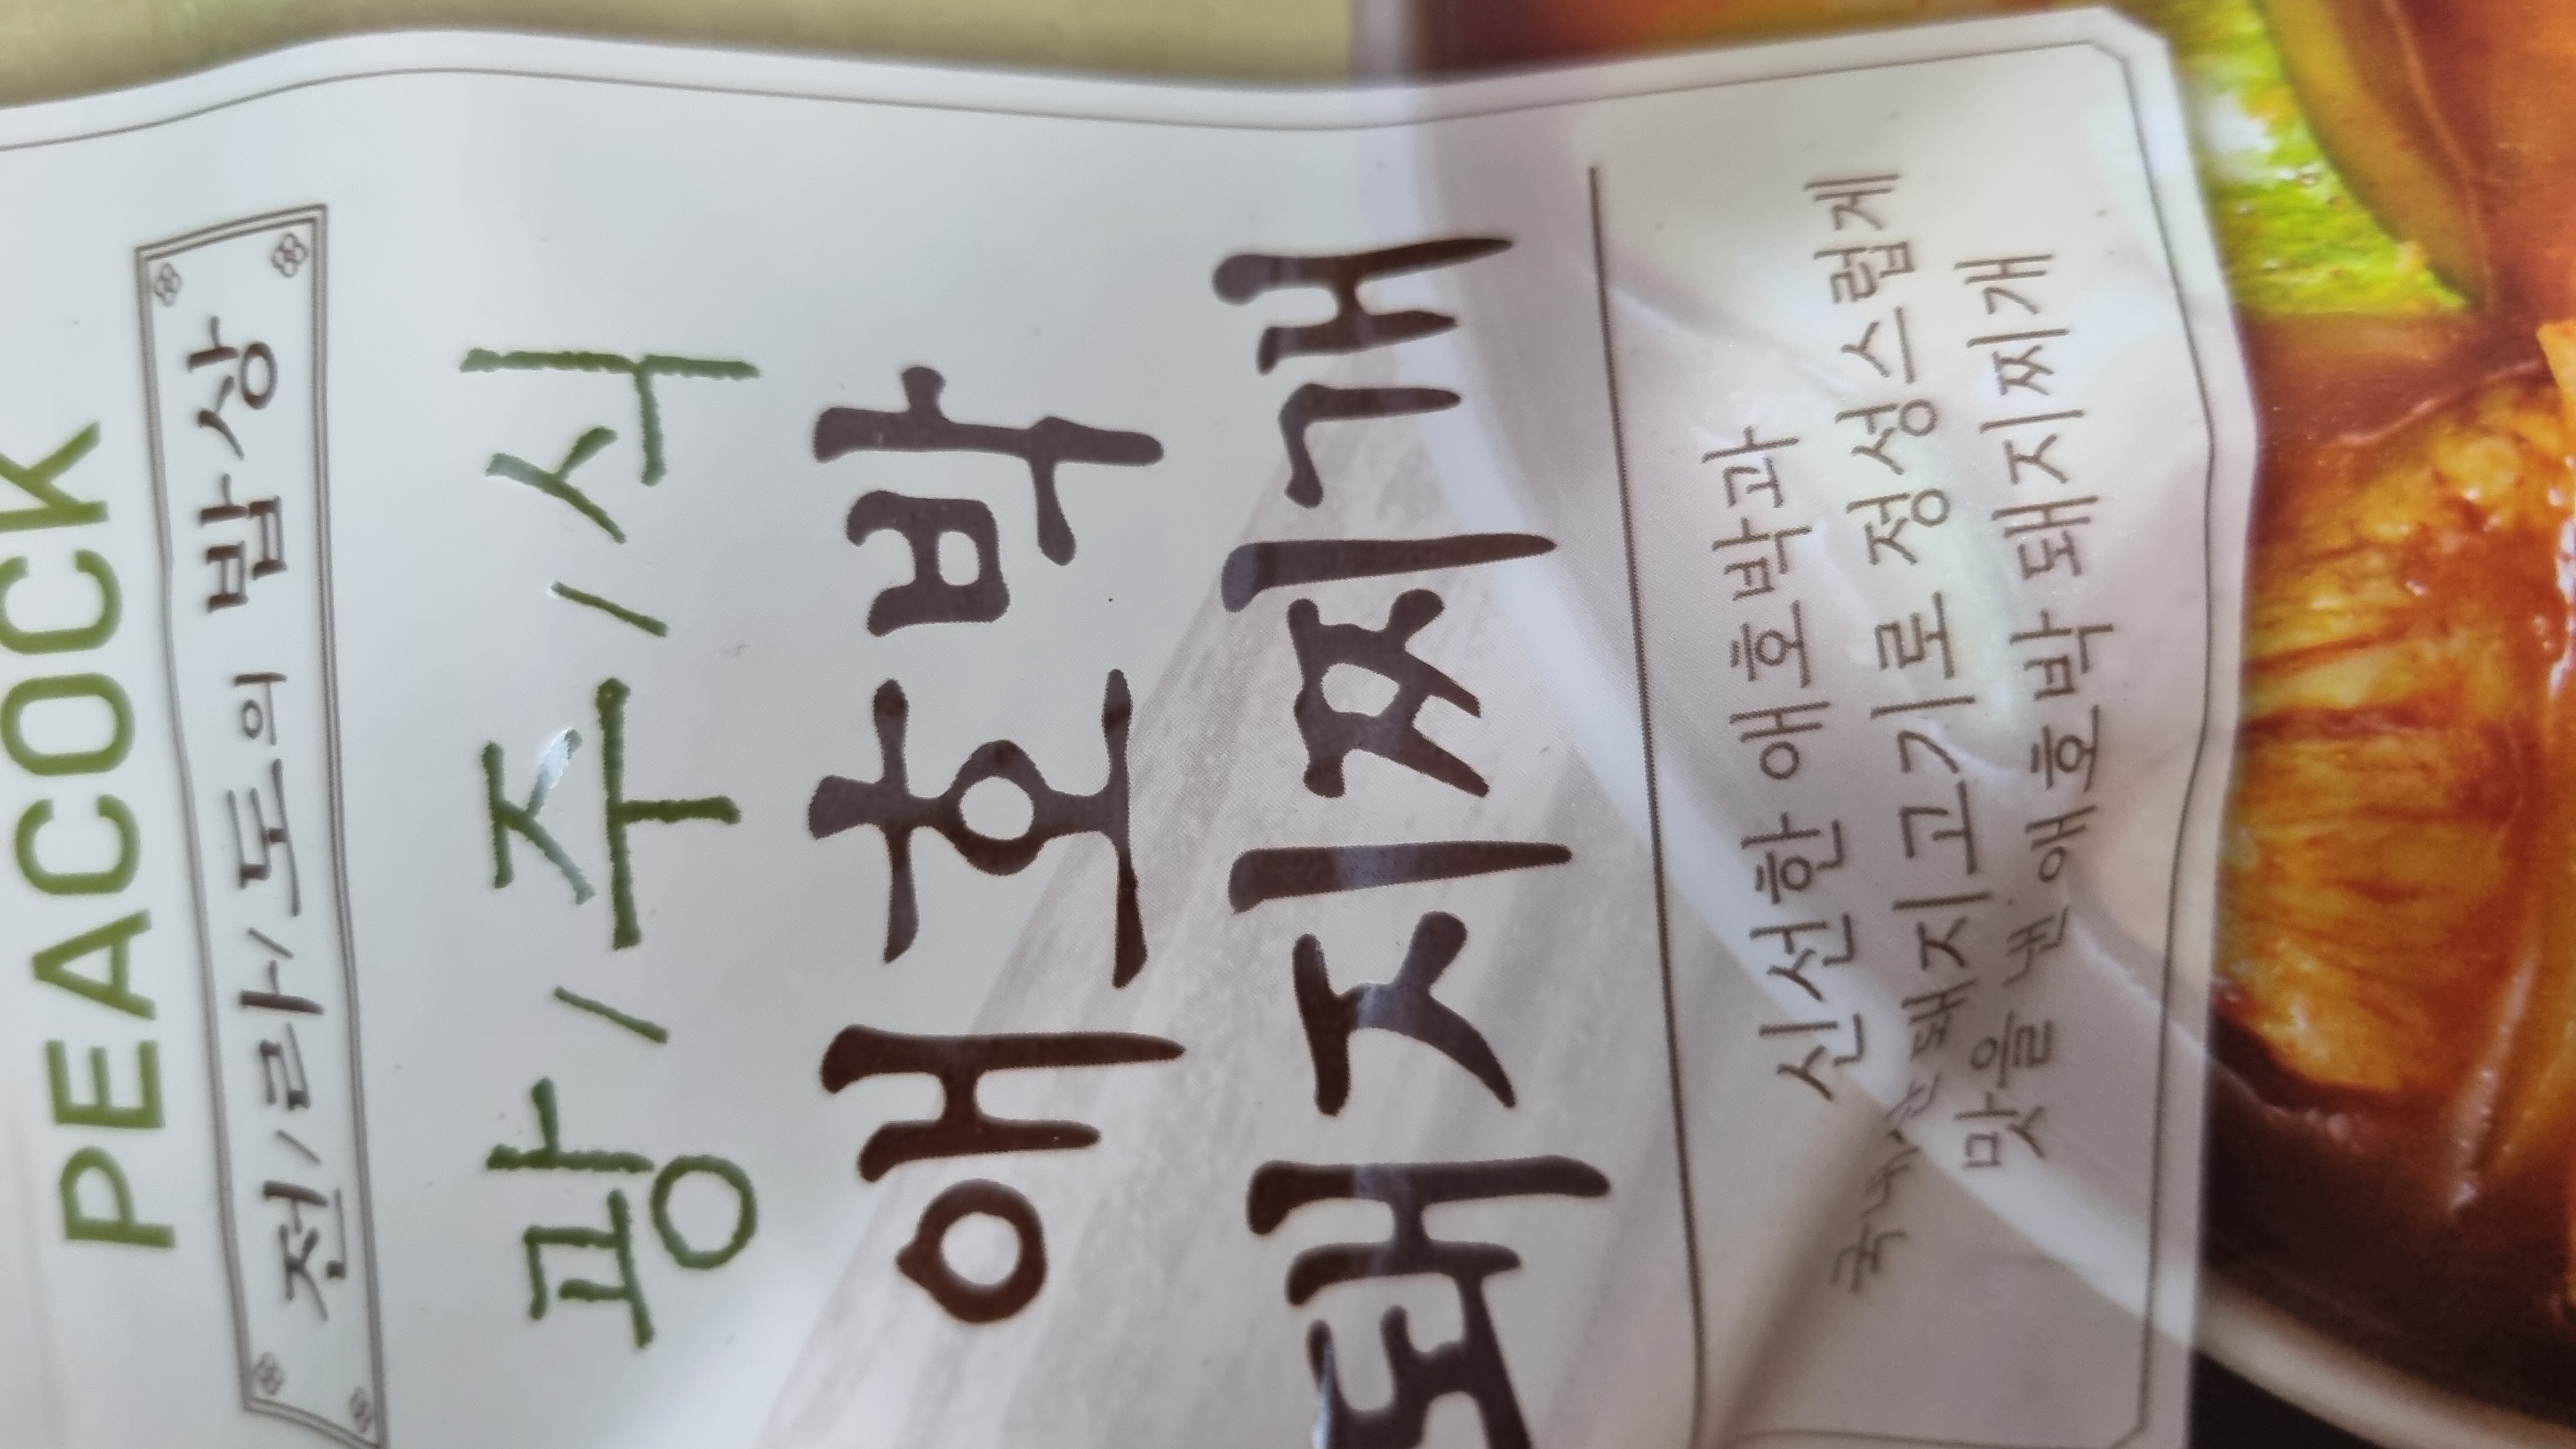 PEACOCK
전/라/도의 밥상
광/주/식
애호박
돼지찌개
신선한 애호박과
국내산 돼지고기로 정성스럽게
맛을 낸 애호박 돼지찌개